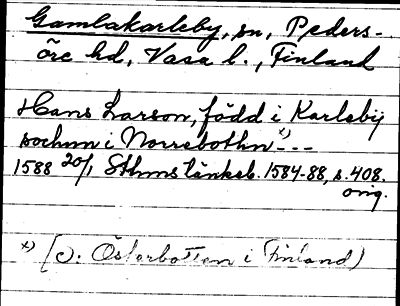 Gamlakarleby, sn, Peders-
öre hd, Vasa l., Finland
Hans Larson, född i Karlebÿ
sochnn i Norrebothn x) - - -
1588 20/1 Sthms tänkeb. 1584-88, s. 408.
orig.
x) [ɔ. Österbotten i Finland)